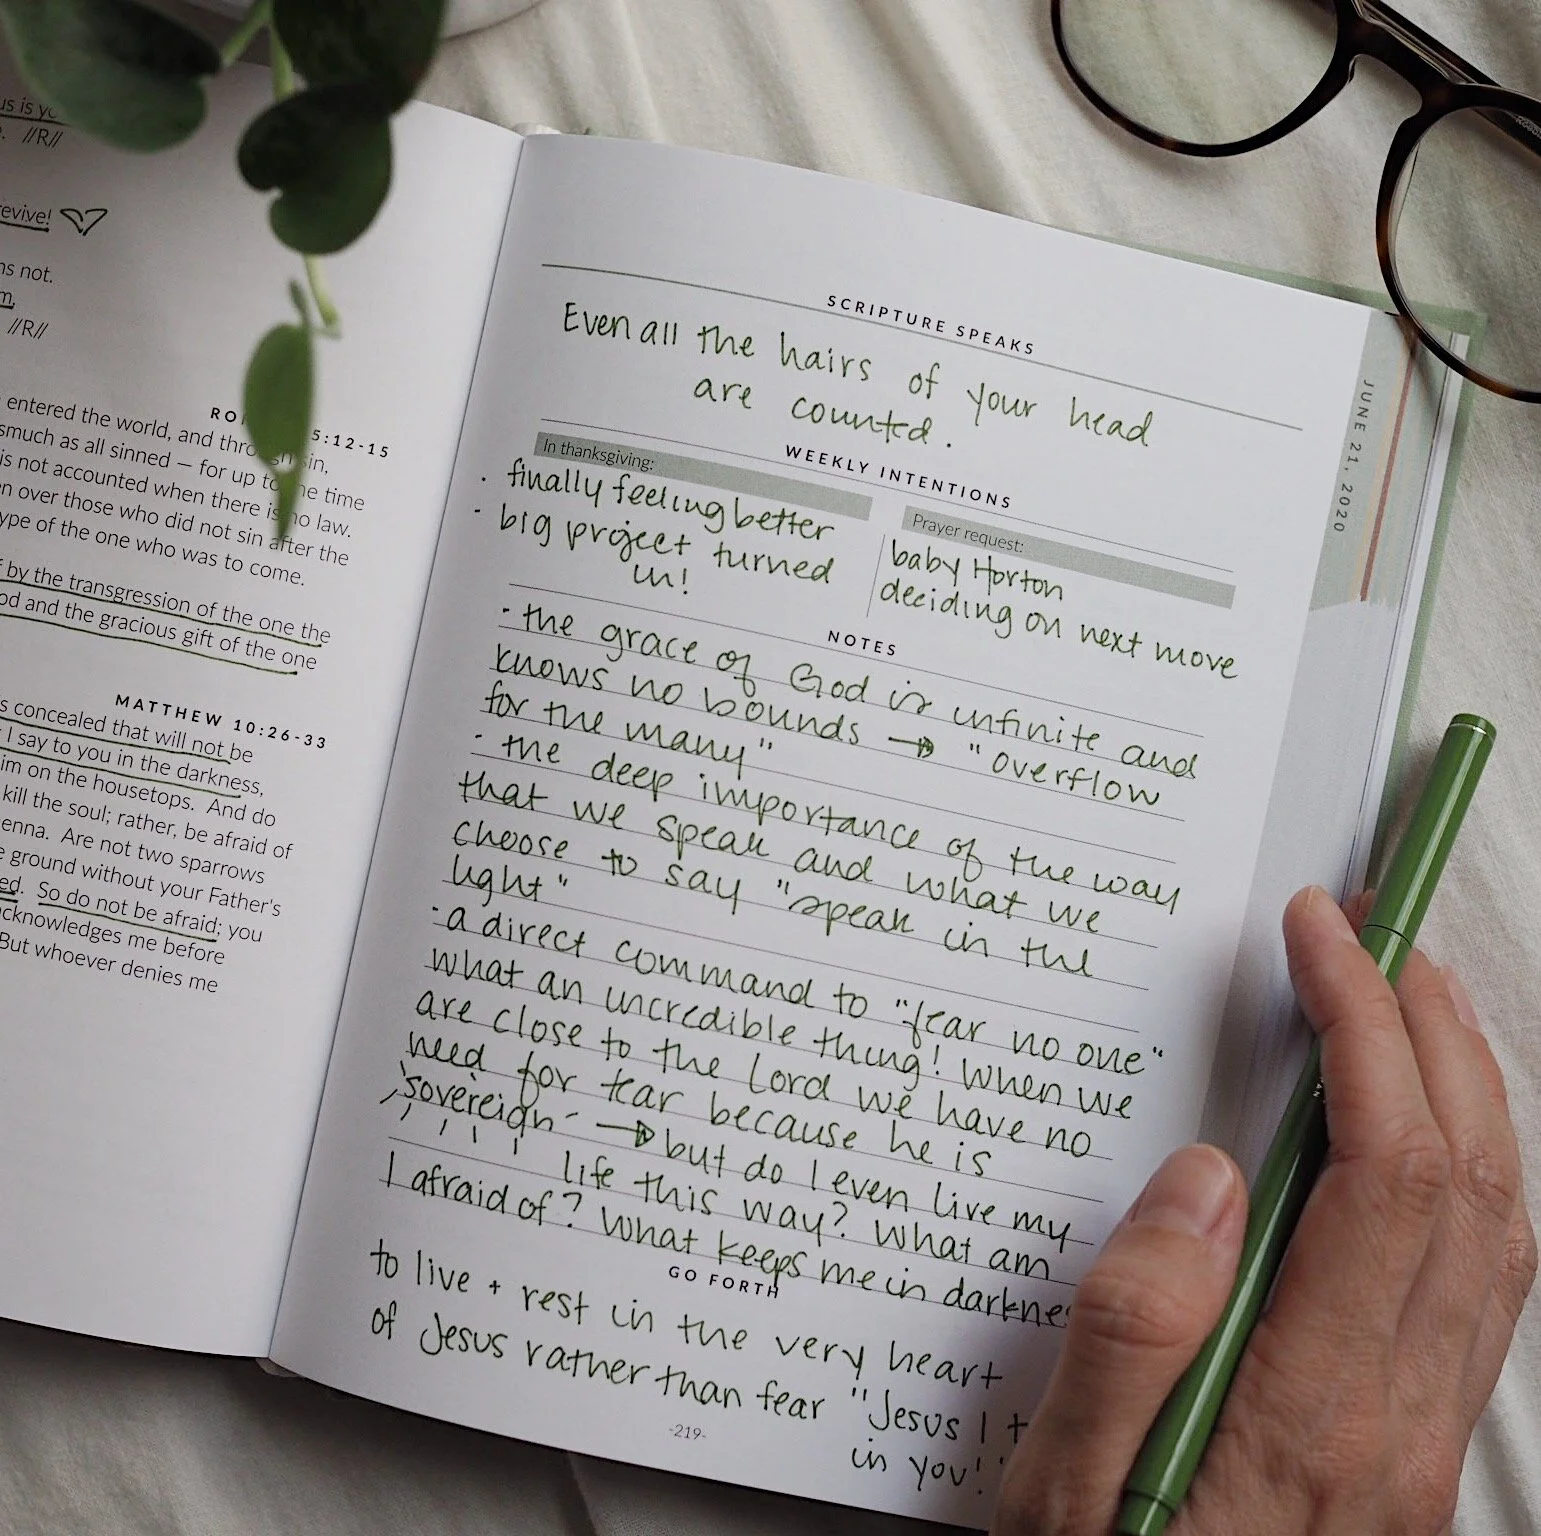 us is yo
//R//
revive!
ns not.
m,
//R//
5:12-15
entered the world, and through sin,
smuch as all sinned — for up to the time
is not accounted when there is no law.
en over those who did not sin after the
ype of the one who was to come.
f by the transgression of the one the
od and the gracious gift of the one
MATTHEW 10:26-33
s concealed that will not be
I say to you in the darkness,
im on the housetops. And do
kill the soul; rather, be afraid of
enna. Are not two sparrows
e ground without your Father's
ed. So do not be afraid; you
cknowledges me before
But whoever denies me
SCRIPTURE SPEAKS
Even all the hairs of your head
are counted.
WEEKLY INTENTIONS
In thanksgiving:
· finally feeling better
· big project turned
in!
Prayer request:
baby Horton
deciding on next move
NOTES
· the grace of God is infinite and
knows no bounds → "overflow
for the many"
· the deep importance of the way
that we speak and what we
choose to say "speak in the
light"
· a direct command to "fear no one"
what an incredible thing! When we
are close to the Lord we have no
need for fear because he is
sovereign → but do I even live my
life this way? What am
I afraid of? What keeps me in darknes
GO FORTH
to live + rest in the very heart
of Jesus rather than fear "Jesus I t
in you!"
-219-
JUNE 21, 2020